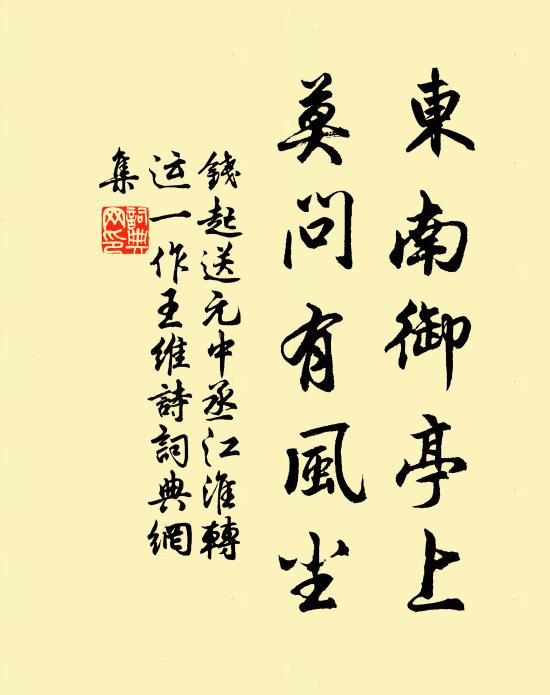 東南御亭上
莫問有風塵
錢起送元中丞江淮轉
运一作王維詩詞典網
集
詞典
网印